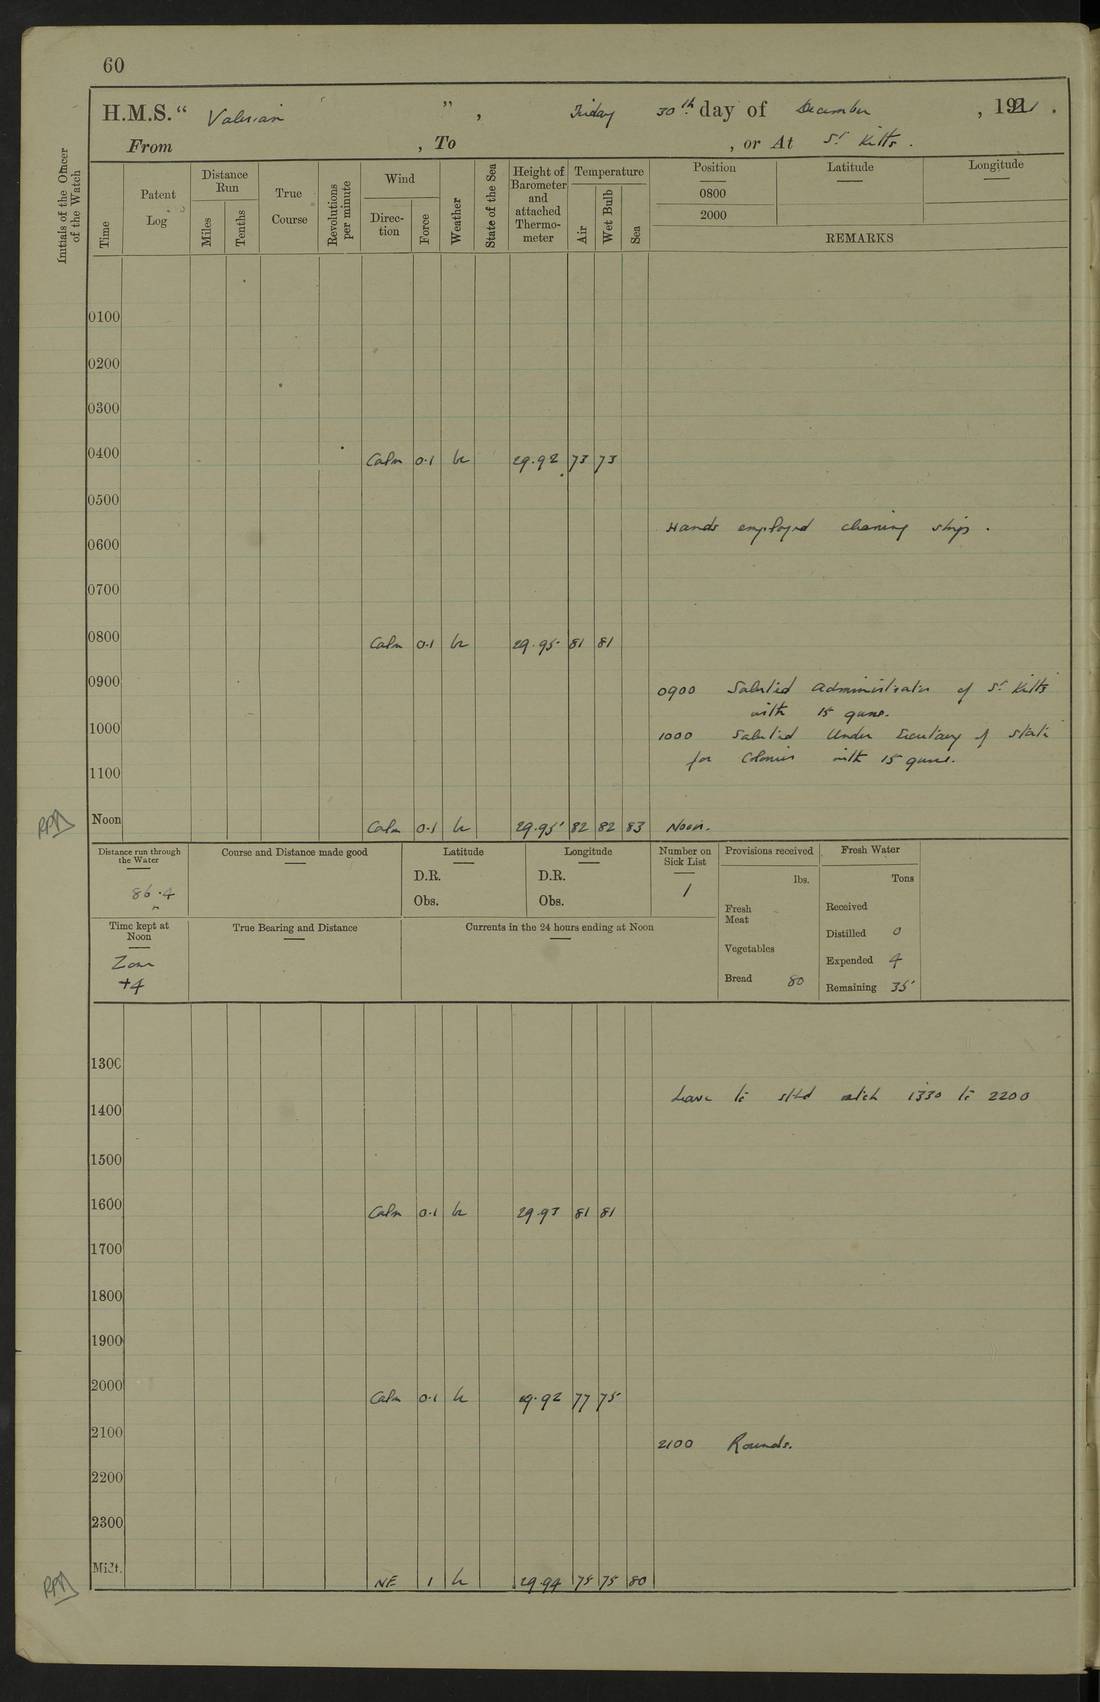 60
H.M.S. “ Valerian ” , Friday 30th day of December , 1921 .
From , To , or At St Kitts .
Initials of the Officer of the Watch
Time
Patent Log
Distance Run
Miles
Tenths
True Course
Revolutions per minute
Wind
Direction
Force
Weather
State of the Sea
Height of Barometer and attached Thermometer
Temperature
Air
Wet Bulb
Sea
Position Latitude Longitude
0800
2000
REMARKS
0100
0200
0300
0400 Calm 0.1 bc 29.92 73 73
0500
Hands employed cleaning ship.
0600
0700
0800 Calm 0.1 bc 29.95 81 81
0900 0900 Saluted Administrator of St Kitts
with 15 guns.
1000 1000 Saluted Under Secretary of State
for Colonies with 15 guns.
1100
Noon Calm 0.1 29.95 82 82 83 Noon.
Distance run through the Water
86.4
Course and Distance made good
Latitude
D.R.
Obs.
Longitude
D.R.
Obs.
Number on Sick List
1
Provisions received
lbs.
Fresh Meat
Vegetables
Bread 80
Fresh Water
Tons
Received
Distilled 0
Expended 4
Remaining 35
Time kept at Noon
Zone
+4
True Bearing and Distance
Currents in the 24 hours ending at Noon
1300
Leave to stbd watch 1330 to 2200
1400
1500
1600 Calm 0.1 bc 29.93 81 81
1700
1800
1900
2000 Calm 0.1 29.92 77 75
2100 2100 Rounds.
2200
2300
Midt. NE 1 29.94 75 75 80